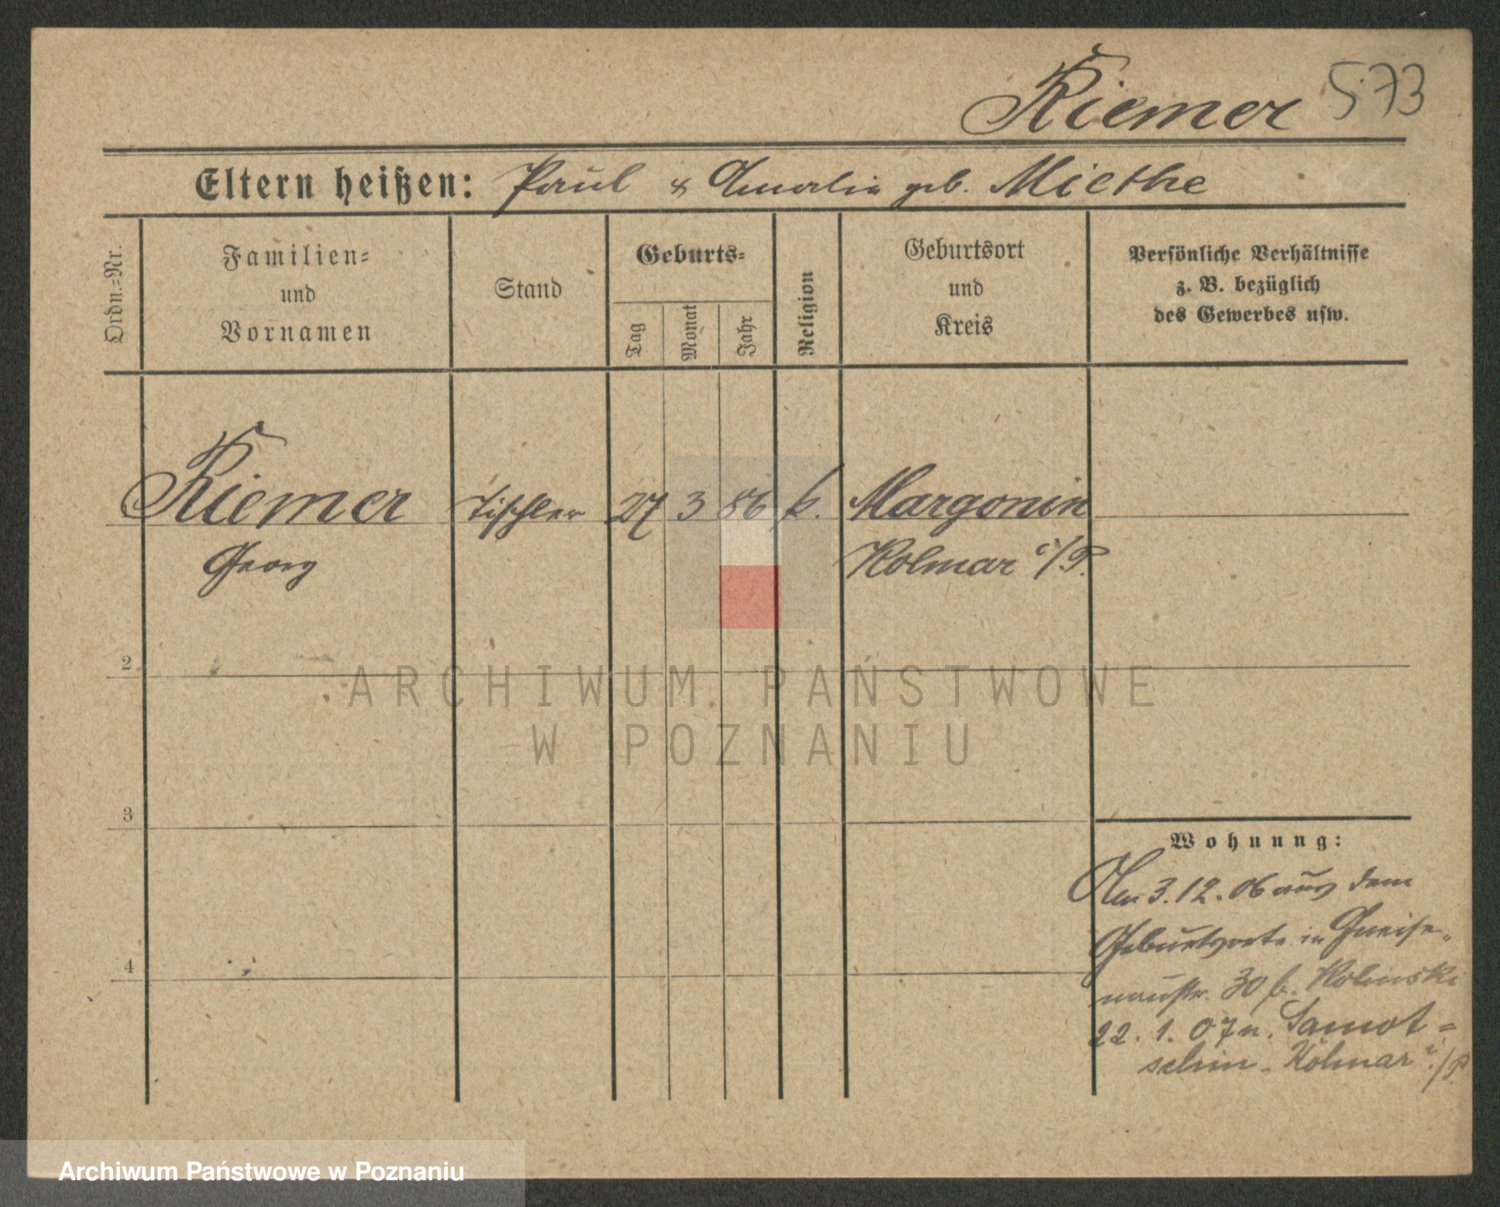 Riemer 573
Eltern heißen: Paul & Amalie geb. Miethe
Ordn.-Nr.
Familien-
und
Vornamen
Stand
Geburts-
Tag
Monat
Jahr
Religion
Geburtsort
und
Kreis
Persönliche Verhältnisse
z. B. bezüglich
des Gewerbes usw.
Riemer Tischler 27 3 86 k. Margonin
Georg Kolmar i/P.
2
3
4
Wohnung:
Am 3.12.06 aus dem
Geburtsorte in Gneise-
naustr. 30 b. Kolinski
22.1.07 n. Samot-
schin - Kolmar i./P.
ARCHIWUM PAŃSTWOWE
W POZNANIU
Archiwum Państwowe w Poznaniu